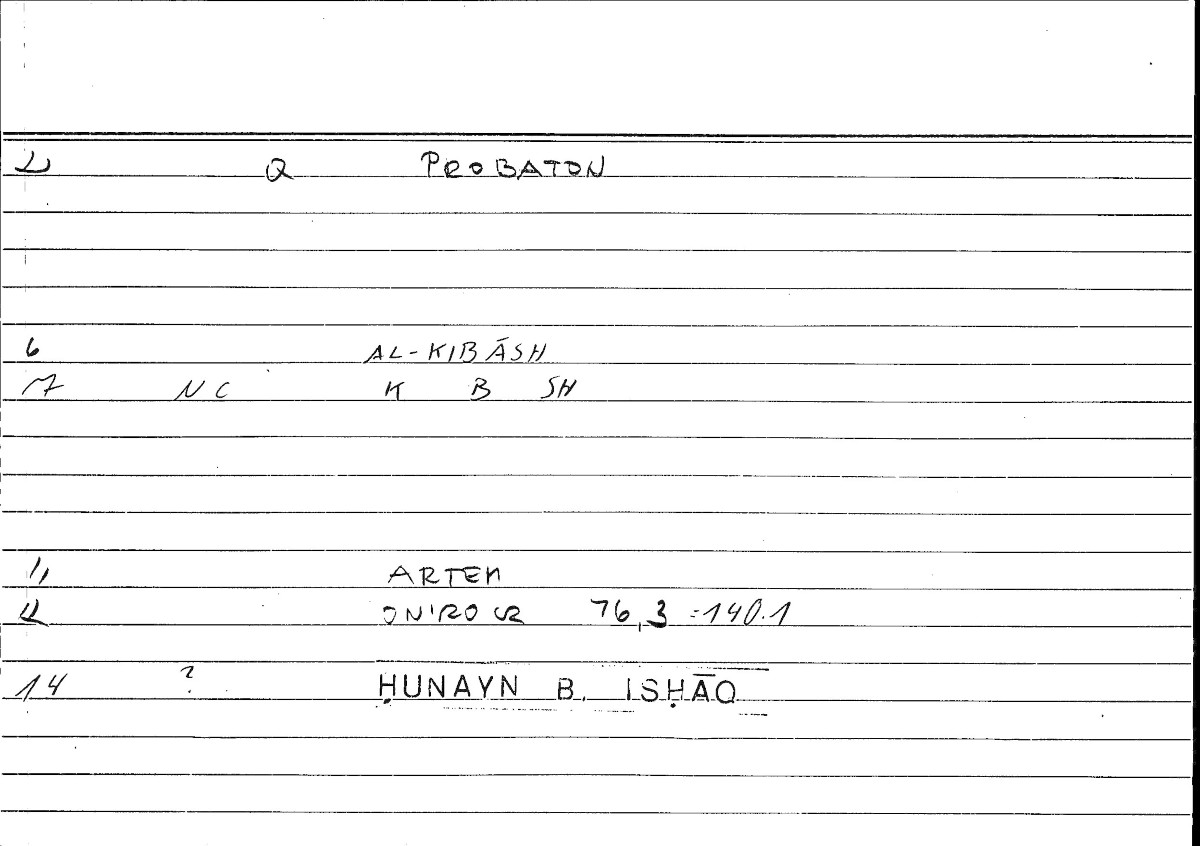 Q PROBATON
6 AL-KIBĀSH
7 NC K B SH
11 ARTEM
12 ONIROCR 76,3 =140.1
14 ? ḤUNAYN B. ISḤĀQ